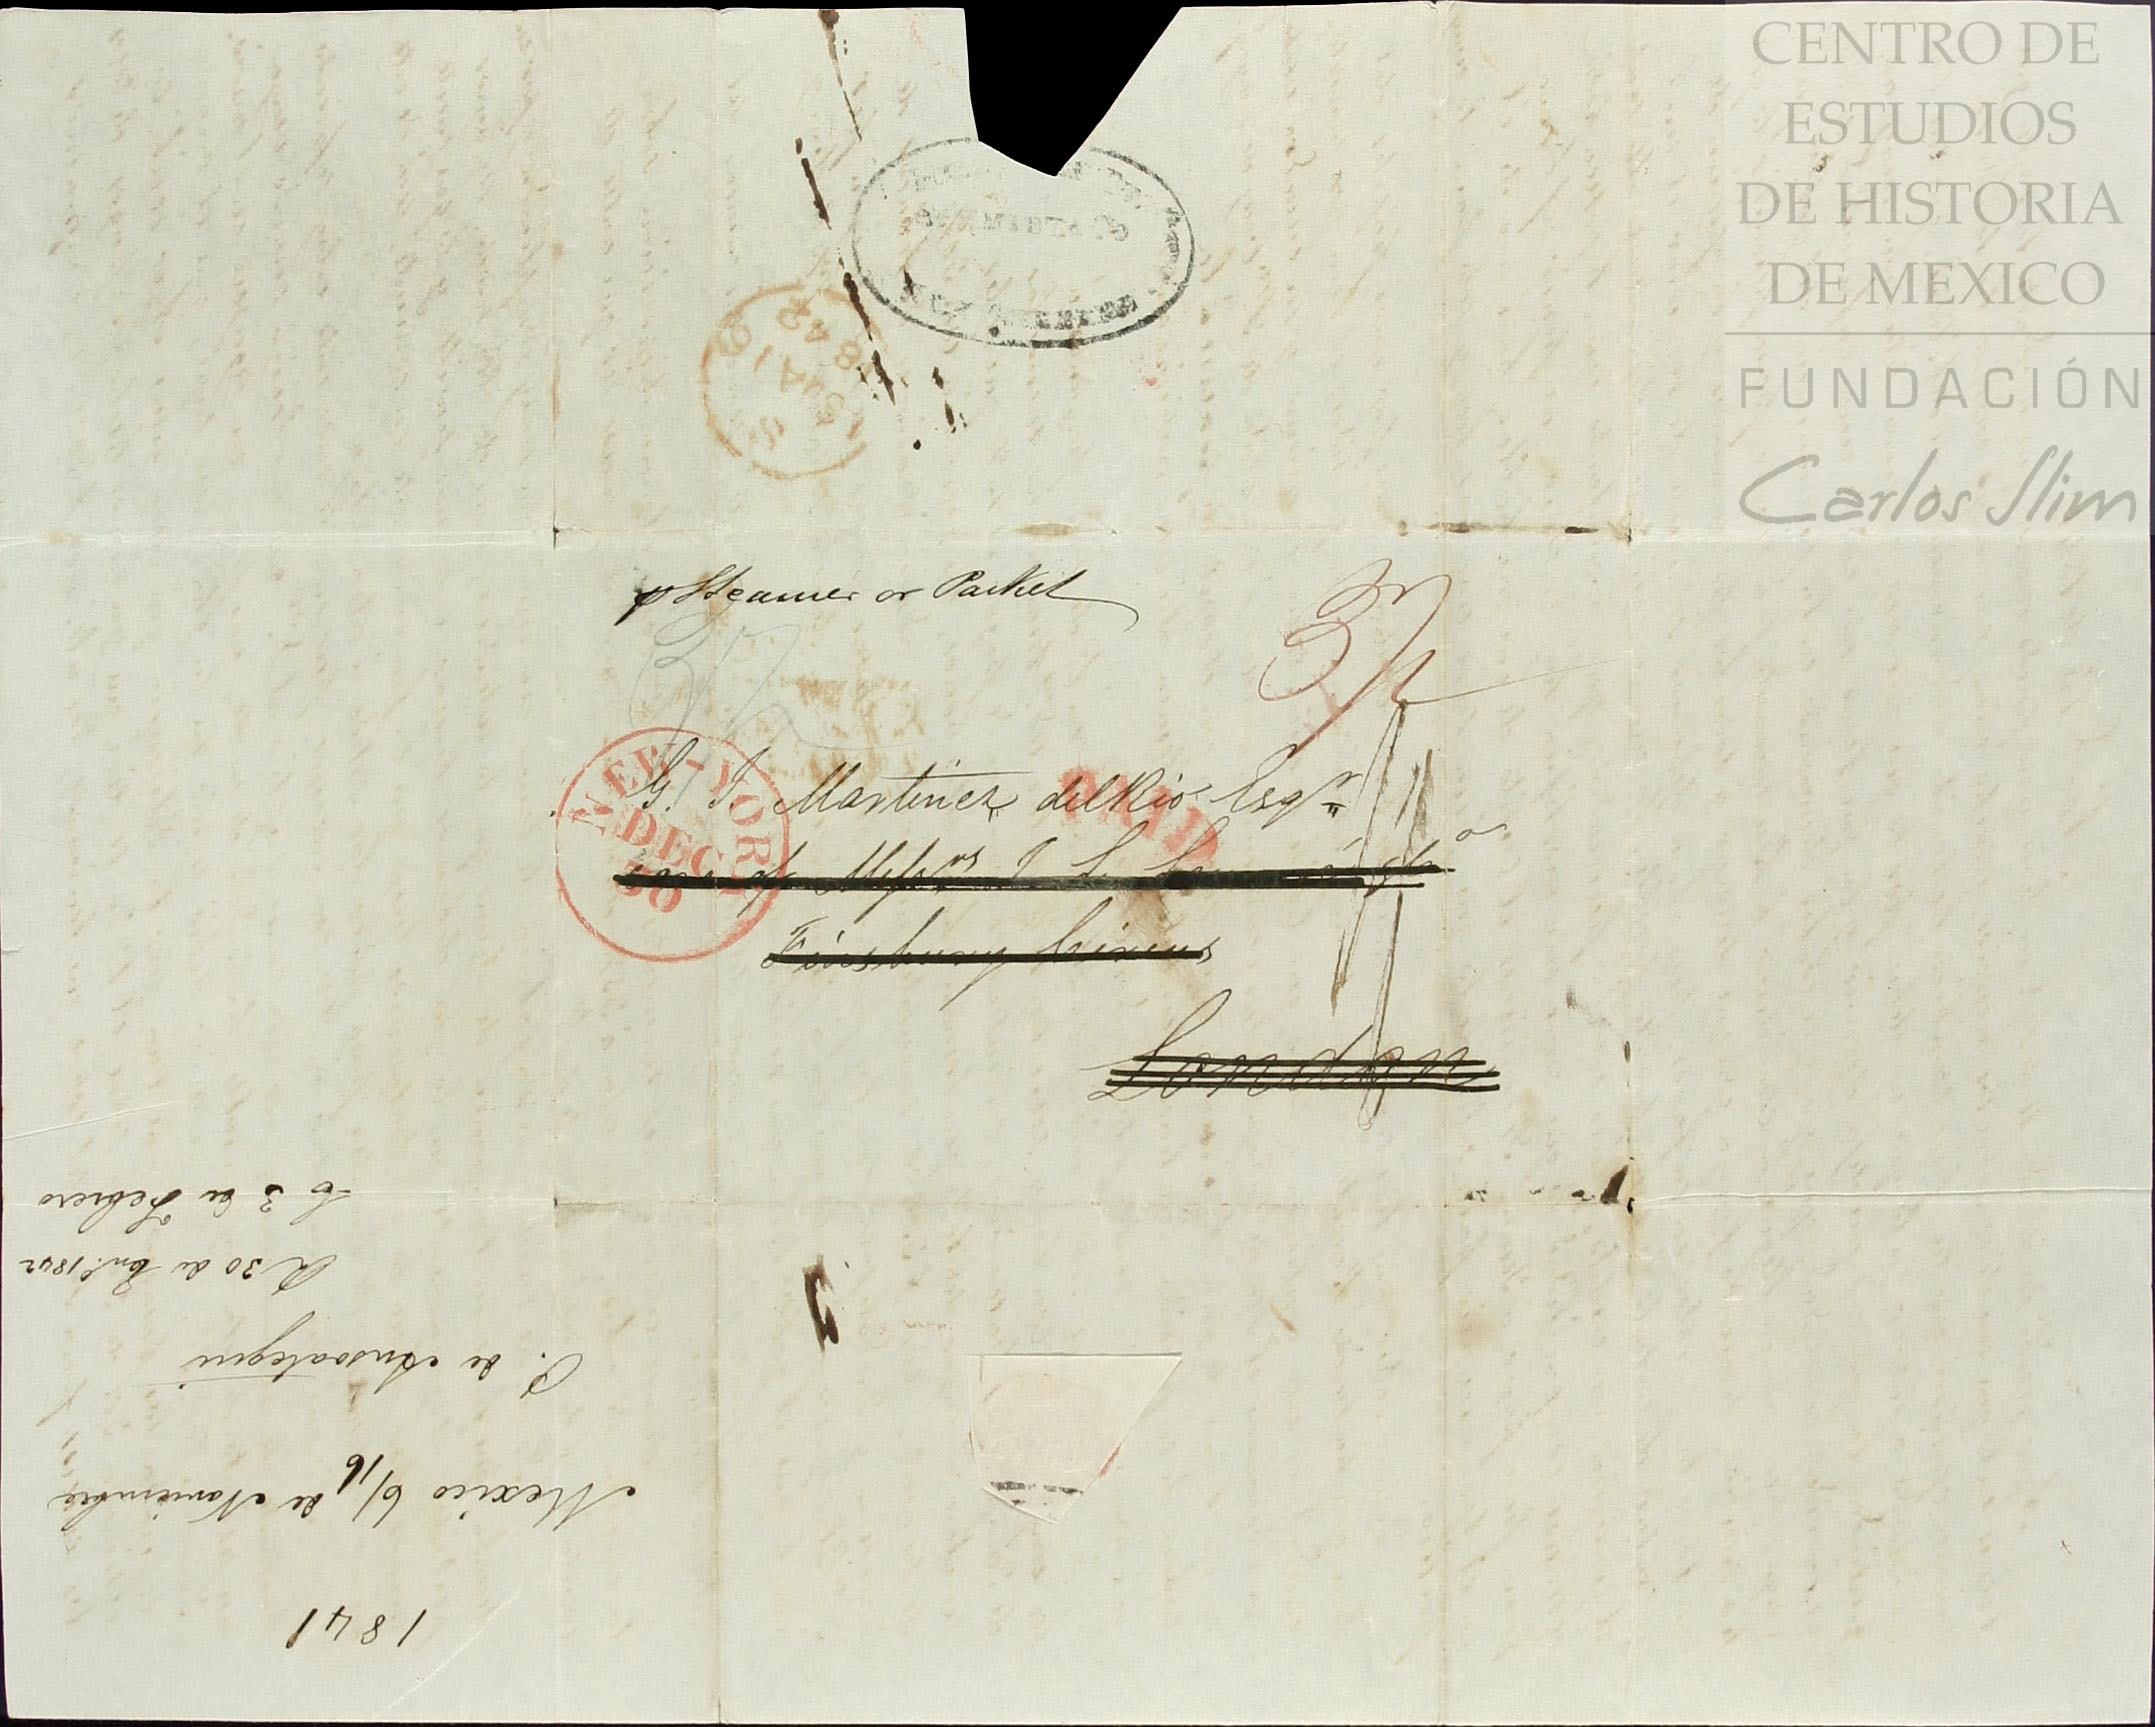 CENTRO DE
ESTUDIOS
DE HISTORIA
DE MEXICO
FUNDACIÓN
Carlos Slim
1842
p Steamer or Packet
3/2
NEW-YORK
DEC
30
PAID
G. J. Martinez del Rio Esqr
care of Messrs J. L.
Finsbury Circus
London
1841
Mexico 6/16 de Noviembre
P. de Ansoategui
R 30 de En.º 1842
C 3 de Febrero